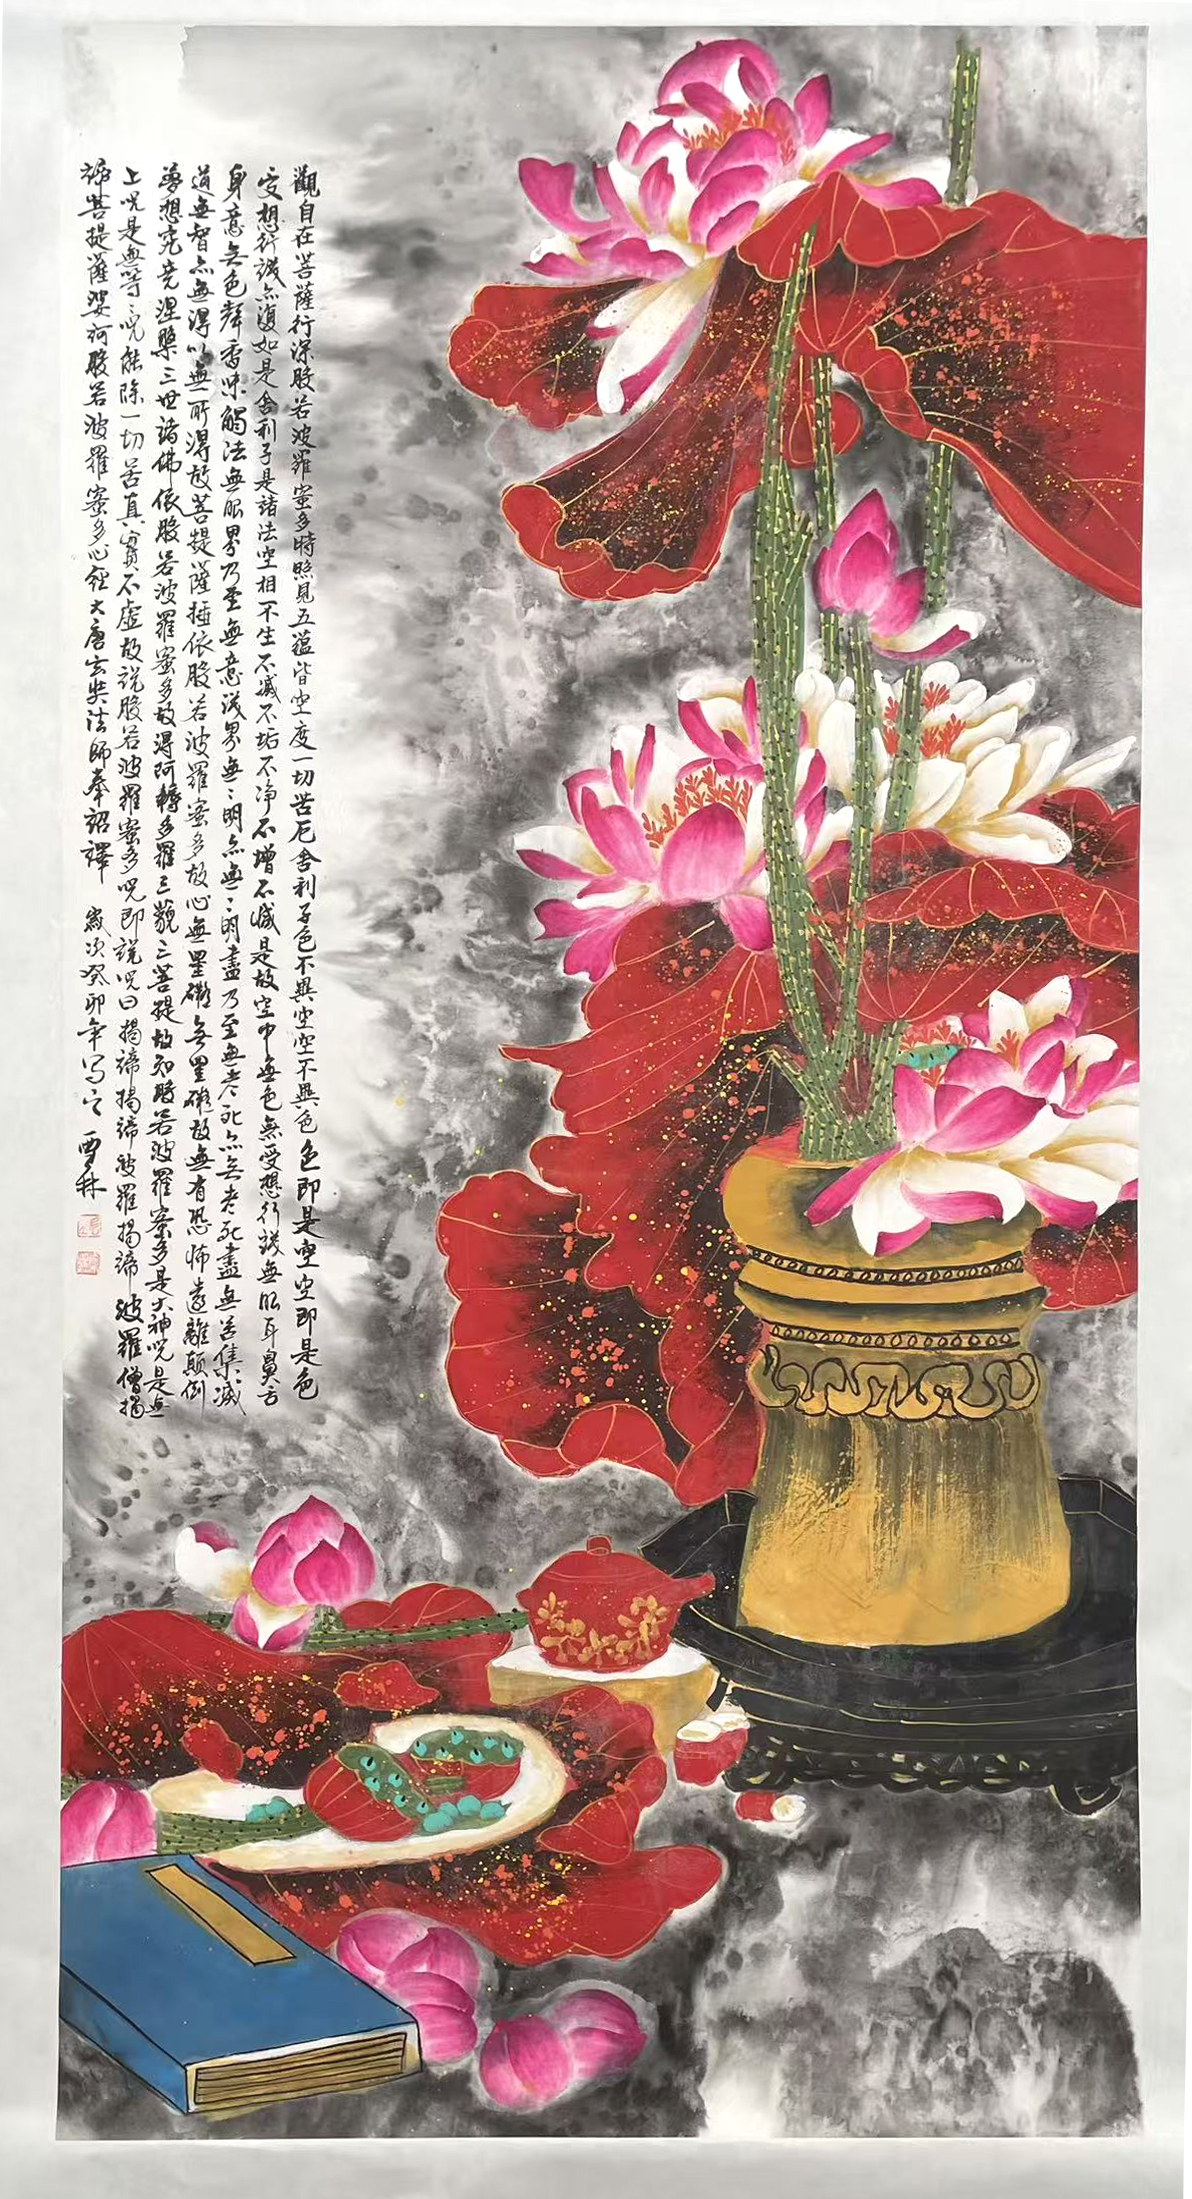 觀自在菩薩行深般若波羅蜜多時照見五蘊皆空度一切苦厄舍利子色不異空空不異色色即是空空即是色
受想行識亦復如是舍利子是諸法空相不生不滅不垢不净不增不减是故空中無色無受想行識無眼耳鼻舌
身意無色聲香味觸法無眼界乃至無意識界無〻明亦無〻明盡乃至無老死亦無老死盡無苦集滅
道無智亦無得以無所得故菩提薩埵依般若波羅蜜多故心無罣礙無罣礙故無有恐怖遠離顛倒
夢想究竟涅槃三世諸佛依般若波羅蜜多故得阿耨多羅三藐三菩提故知般若波羅蜜多是大神咒是無
上咒是無等〻咒能除一切苦真實不虛故說般若波羅蜜多咒即說咒曰揭諦揭諦波羅揭諦波羅僧揭
諦菩提薩婆訶般若波羅蜜多心經大唐玄奘法師奉詔譯 歲次癸卯年写之